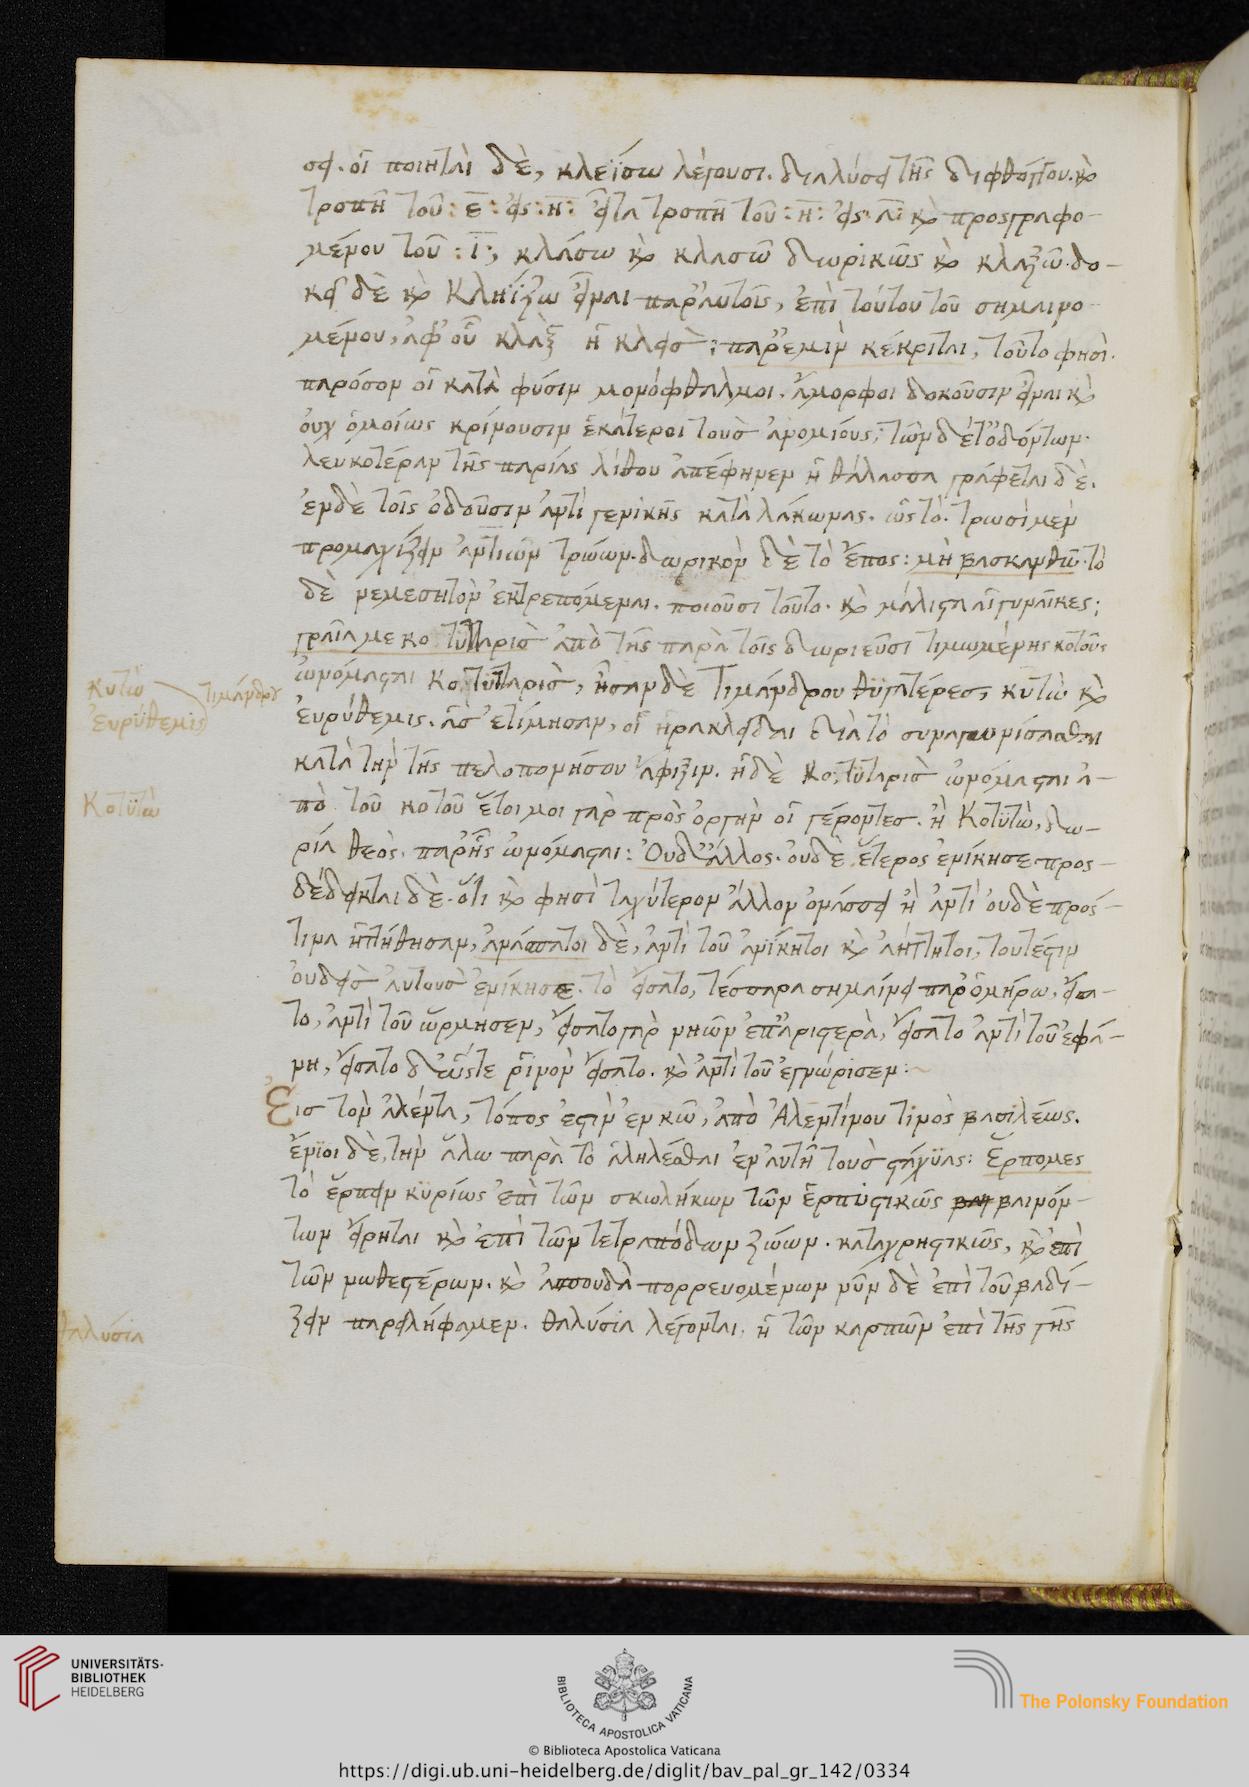 σει. οἱ ποιηταὶ δὲ, κλεΐσω λέγουσι. διαλύσει τῆς διφθόγγου. καὶ
τροπῇ τοῦ : ε : εἰς : η : εἶτα τροπῇ τοῦ : η : εἰς α : καὶ προσγραφο-
μένου τοῦ : ι :, κλάσω καὶ κλασῶ δωρικῶς καὶ κλαξῶ. δο-
κεῖ δὲ καὶ Κληΐζω εἶναι παρ' αὐτοῖς, ἐπὶ τούτου τοῦ σημαινο-
μένου, ἀφ' οὗ κλὰξ ἡ κλεὶσ : παρ' ἐμὶν κέκριται, τοῦτο φησὶ.
παρόσον οἱ κατὰ φύσιν μονόφθαλμοι. ἄμορφοι δοκοῦσιν εἶναι καὶ
ὀυχ ὁμοίως κρίνουσιν ἑκάτεροι τοὺσ ἀνομίους; τῶν δέ τ' ὀδόντων.
λευκοτέραν τῆς παρίας λίθου ἀπέφηνεν ἡ θάλασσα γράφεται δὲ.
ἐν δὲ τοῖς ὀδοῦσιν ἀντὶ γενικῆς κατὰ λάκωνας. ὡς τὸ. τρωσὶ μὲν
προμαχίζειν ἀντι τῶν τρώων. δωρικὸν δὲ τὸ ἔπος : μὴ βασκανθῶ. τὸ
δὲ νεμεσητὸν ἐκτρεπόμεναι. ποιοῦσι τοῦτο. καὶ μάλιστα αἱ γυναῖκες;
γραῖα με κο τυτταρὶσ ἀπὸ τῆς παρὰ τοῖς δωριεῦσι τιμωμένης κοτοῦς
ὠνόμασται Κο τυτταρὶσ, ἦσαν δὲ Τιμάνδρου θυγατέρεσ, κυτὼ καὶ
ἐυρύθεμις. ἃσ ἐτίμησαν, οἱ ἡρακλεῖδαι διὰ τὸ συναγωνίσασθαι
κατὰ τὴν τῆς πελοπονήσου ἄφιξιν. ἡ δὲ Κο τυταρὶσ ὠνόμασται ἀ-
πὸ τοῦ κοτοῦ ἕτοιμοι γὰρ πρὸς ὀργὴν οἱ γέροντεσ. ἢ Κοτυτὼ, δω-
ρία θεὸς. παρ' ἧς ὠνόμασται : Ὀυδ' ἄλλος. ὀυδὲ ἕτερος ἐνίκησε προς-
δέδεικται δὲ. ὅτι καὶ φησὶ ταχύτερον ἄλλον ὀνάσσει ἢ ἀντὶ ὀυδὲ πρός-
τινα ἡττήθησαν, ἀνάσσατοι δὲ, ἀντὶ τοῦ ἀνίκητοι καὶ ἀήττητοι, τουτέστιν
ὀυδεὶσ ἀυτουσ ἐνίκησε. τὸ εἴσατο, τέσσαρα σημαίνει παρ' ὁμήρω, εἴσα-
το, ἀντὶ τοῦ ὥρμησεν, εἴσατο γὰρ νηῶν ἐπ' ἀριστερὰ, εἴσατο ἀντὶ τοῦ ἐφά-
νη, εἴσατο δ' ὥστε ῥινὸν εἴσατο. καὶ ἀντὶ τοῦ ἐγνώρισεν :
Εἰσ τὸν ἀλέντα, τόπος ἐστὶν ἐν κῶ, ἀπὸ Ἀλεντίνου τινὸς βασιλέως.
ἔνϊοι δὲ, τὴν ἅλω παρὰ τὸ ἀληλέσθαι ἐν ἀυτῇ τοὺσ στάχϋας : Ἕρπομες
τὸ ἕρπειν κϋρίως ἐπὶ τῶν σκωλήκων τῶν ἑρπυστικῶς βαινόν-
των εἴρηται καὶ ἐπὶ τῶν τετραπόδων ζώων. καταχρηστικῶς, καὶ ἐπὶ
τῶν νωθεστέρων. καὶ ἀπσουδὰ πορρευομένων νῦν δὲ ἐπὶ τοῦ βαδί-
ζειν παρειλήφαμεν. θαλύσια λέγονται. ἡ τῶν καρπῶν ἐπὶ τῆς γῆς
Κυτὼ
ἐυρύθεμις
τιμάνδρου
Κοτϋτὼ
θαλύσια
UNIVERSITÄTS-
BIBLIOTHEK
HEIDELBERG
BIBLIOTECA APOSTOLICA VATICANA
The Polonsky Foundation
© Biblioteca Apostolica Vaticana
https://digi.ub.uni-heidelberg.de/diglit/bav_pal_gr_142/0334